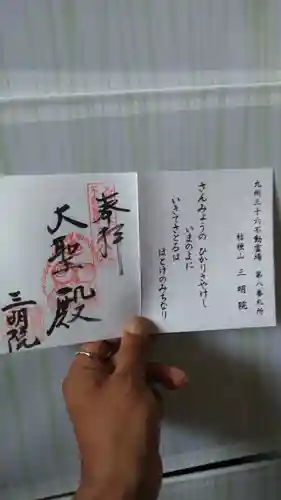 九州三十六不動霊場 第八番札所
桔梗山 三明院
さんみょうの ひかりさやけし
いまのよに
いきてさとるは
ほとけのみちなり
奉拝
大聖殿
三明院